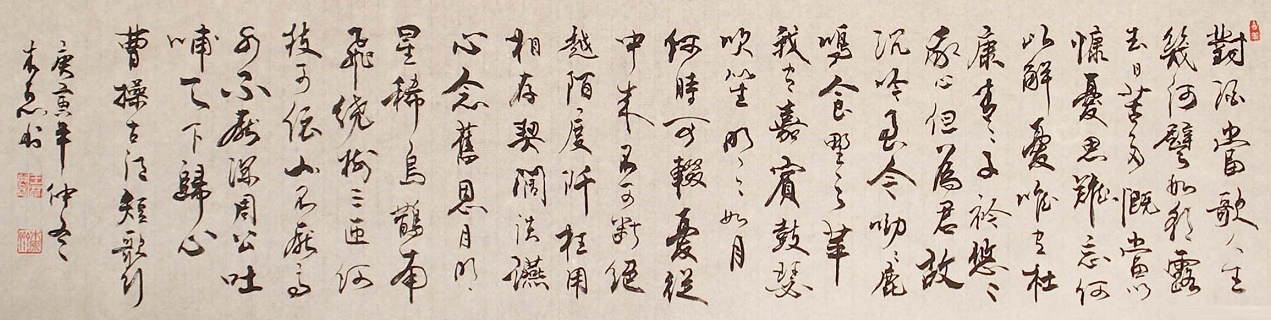 對酒當歌人生
幾何譬如朝露
去日苦多慨當以
慷憂思難忘何
以解憂唯有杜
康青々子衿悠々
我心但為君故
沉吟至今呦々鹿
鳴食野之苹
我有嘉賓鼓瑟
吹笙明々如月
何時可輟憂從
中來不可斷絕
越陌度阡枉用
相存契闊談讌
心念舊恩月明
星稀烏鵲南
飛繞樹三匝何
枝可依山不厭高
水不厭深周公吐
哺天下歸心
曹操古詩短歌行
庚寅年仲冬